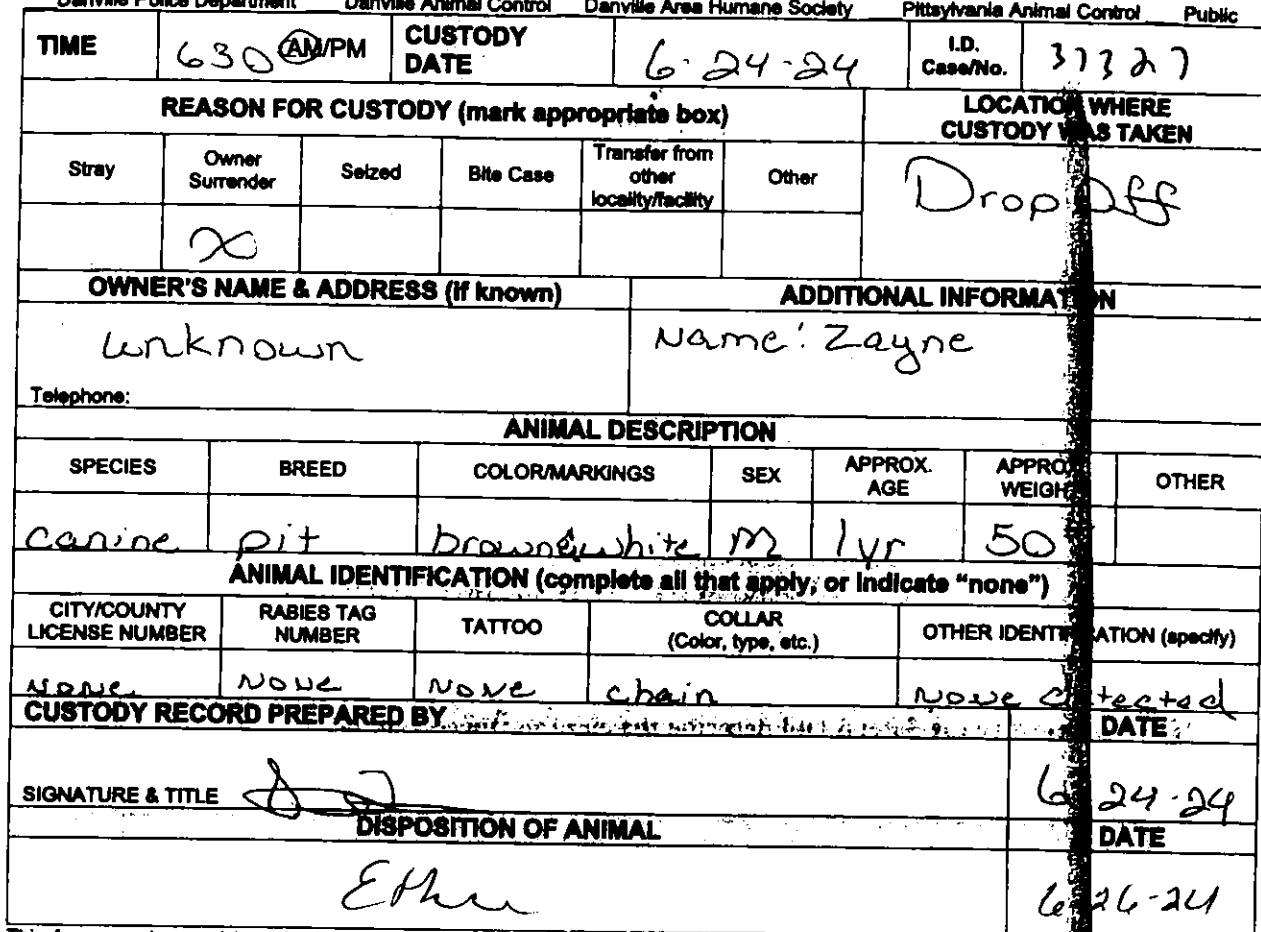 Danville Police Department Danville Animal Control Danville Area Humane Society Pittsylvania Animal Control Public
TIME 630 AM/PM CUSTODY DATE 6-24-24 I.D. Case/No. 31327
REASON FOR CUSTODY (mark appropriate box) LOCATION WHERE CUSTODY WAS TAKEN
Stray Owner Surrender Seized Bite Case Transfer from other locality/facility Other Drop Off
X
OWNER'S NAME & ADDRESS (if known) ADDITIONAL INFORMATION
unknown Name: Zayne
Telephone:
ANIMAL DESCRIPTION
SPECIES BREED COLOR/MARKINGS SEX APPROX. AGE APPROX. WEIGHT OTHER
canine pit brown & white M 1yr 50
ANIMAL IDENTIFICATION (complete all that apply, or indicate "none")
CITY/COUNTY LICENSE NUMBER RABIES TAG NUMBER TATTOO COLLAR (Color, type, etc.) OTHER IDENTIFICATION (specify)
None None None chain None detected
CUSTODY RECORD PREPARED BY DATE
SIGNATURE & TITLE 6-24-24
DISPOSITION OF ANIMAL DATE
6-26-24